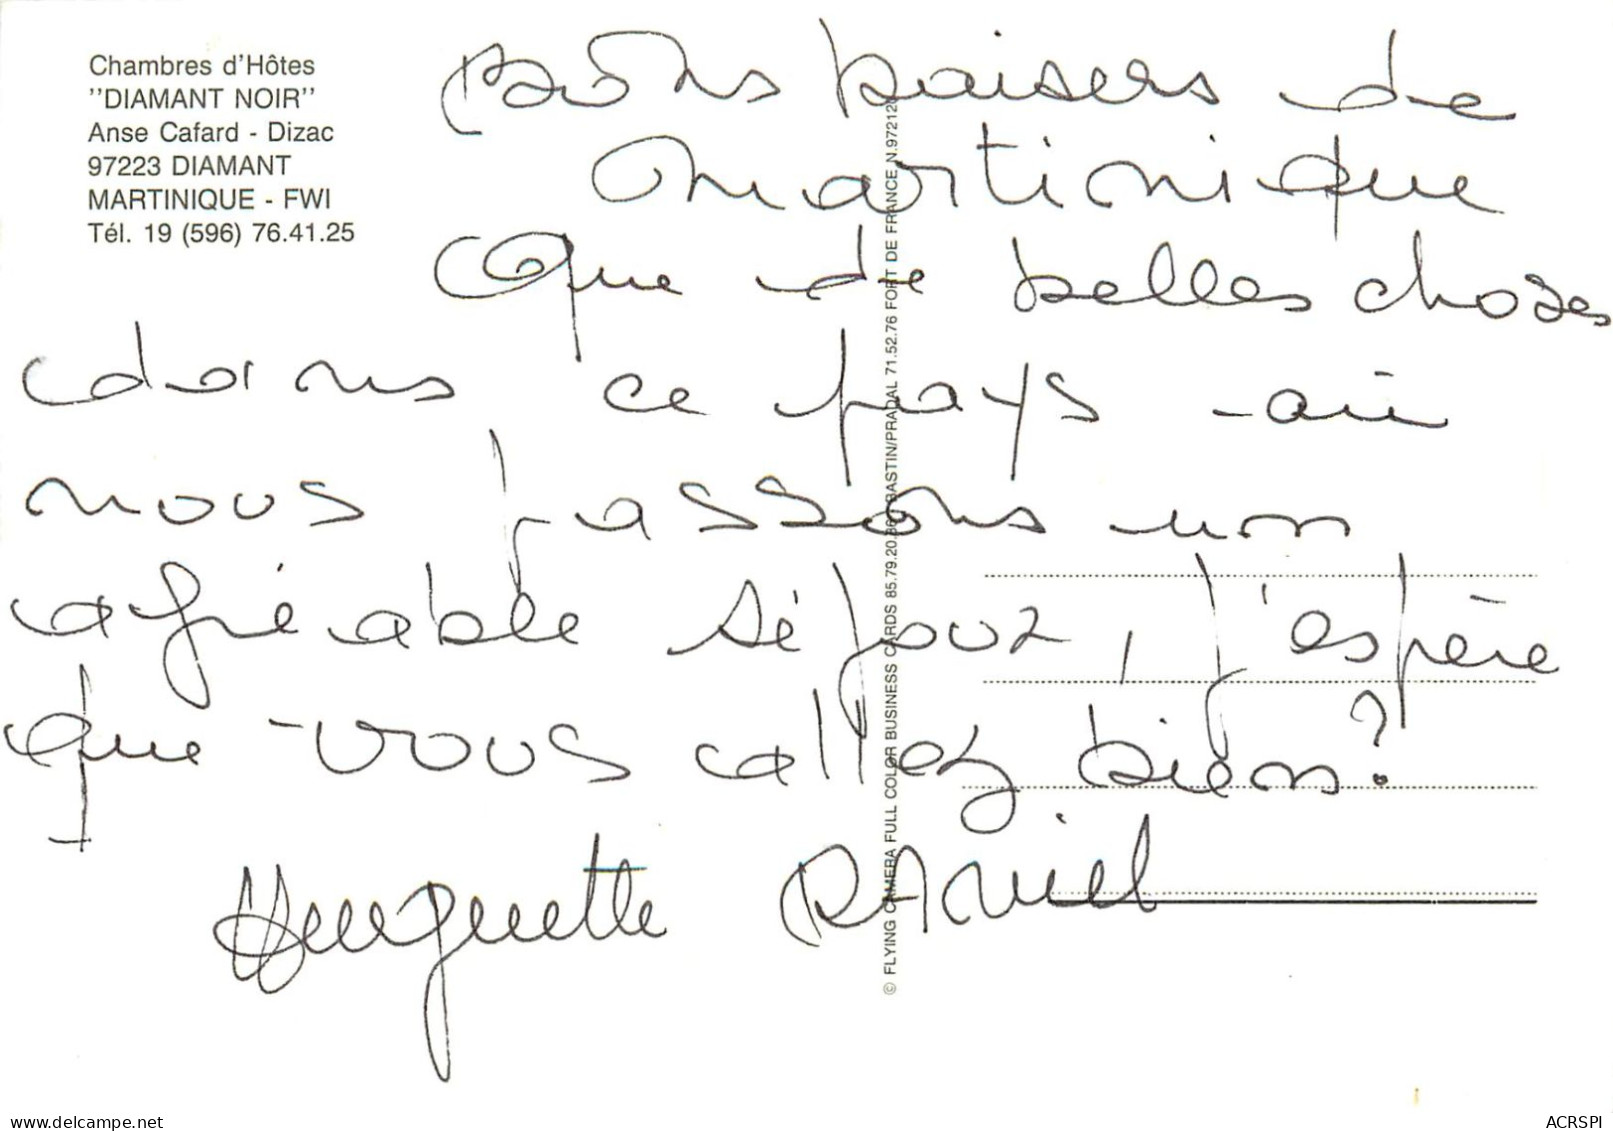 Chambres d'Hôtes
''DIAMANT NOIR''
Anse Cafard - Dizac
97223 DIAMANT
MARTINIQUE - FWI
Tél. 19 (596) 76.41.25
Bons baisers de
Martinique
Que de belles choses
dans ce pays où
nous passons un
agréable séjour, j'espère
que vous allez bien?
Huguette Daniel
© FLYING CAMERA FULL COLOR BUSINESS CARDS 85.79.20 BASTIN/PRADAL 71.52.76 FORT DE FRANCE N.972120
www.delcampe.net
ACRSPI